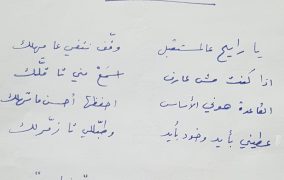 يا رايح عالمستقبل وقّف نتفي عا مهلك
اذا كنت مش عارف اسمع مني تا قلّك
القاعدة هوني الأساس احفظها أحسن ما تهلك
عطيني بأيد وخود بأيد وطبّلي تا زمّرلك